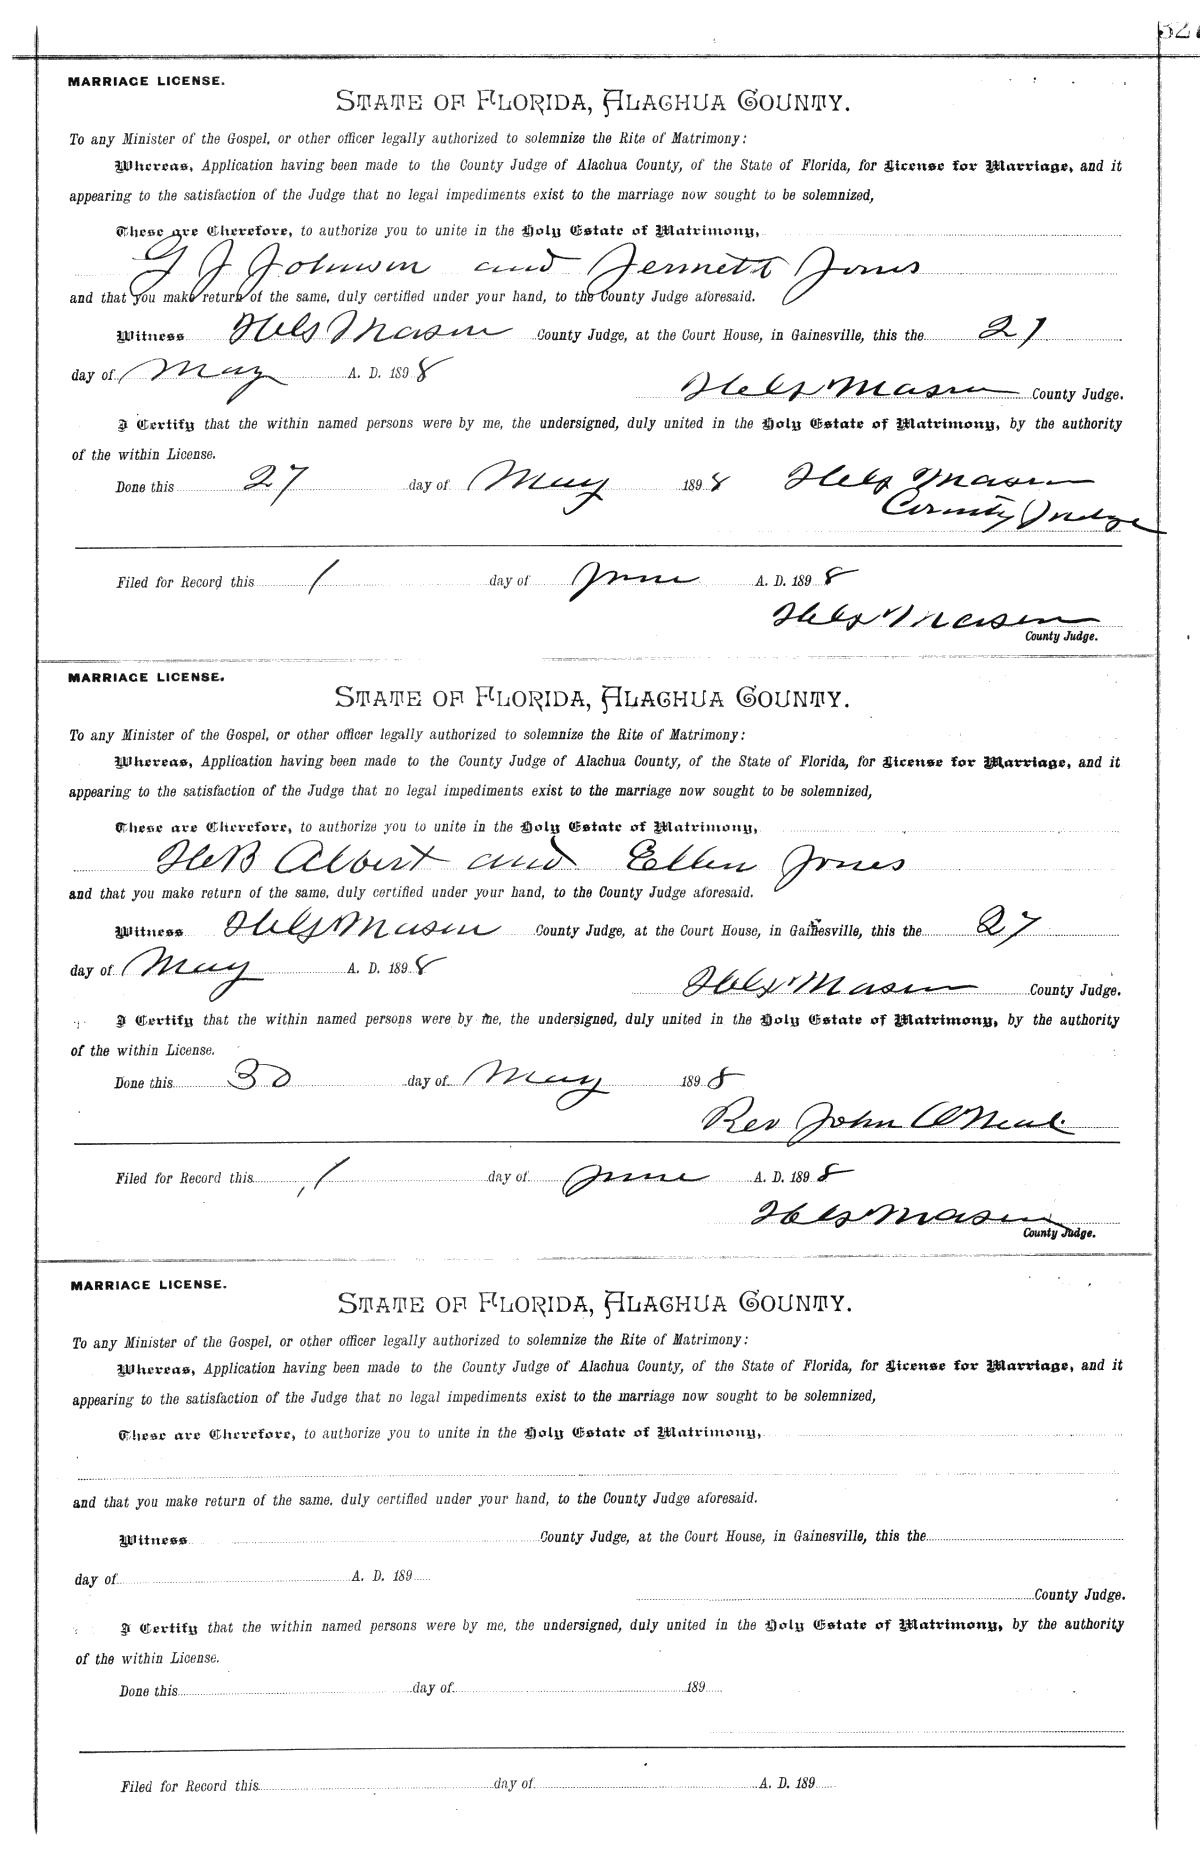 MARRIAGE LICENSE.
STATE OF FLORIDA, ALACHUA COUNTY.
To any Minister of the Gospel, or other officer legally authorized to solemnize the Rite of Matrimony:
Whereas, Application having been made to the County Judge of Alachua County, of the State of Florida, for License for Marriage, and it
appearing to the satisfaction of the Judge that no legal impediments exist to the marriage now sought to be solemnized,
These are Therefore, to authorize you to unite in the Holy Estate of Matrimony,
G J Johnson and Jennett Jones
and that you make return of the same, duly certified under your hand, to the County Judge aforesaid.
Witness Mason County Judge, at the Court House, in Gainesville, this the 27
day of May A. D. 1898
Mason County Judge.
I Certify that the within named persons were by me, the undersigned, duly united in the Holy Estate of Matrimony, by the authority
of the within License.
Done this 27 day of May 1898 Mason
County Judge
Filed for Record this 1 day of June A. D. 1898
Mason
County Judge.
MARRIAGE LICENSE.
STATE OF FLORIDA, ALACHUA COUNTY.
To any Minister of the Gospel, or other officer legally authorized to solemnize the Rite of Matrimony:
Whereas, Application having been made to the County Judge of Alachua County, of the State of Florida, for License for Marriage, and it
appearing to the satisfaction of the Judge that no legal impediments exist to the marriage now sought to be solemnized,
These are Therefore, to authorize you to unite in the Holy Estate of Matrimony,
H B Albert and Ellen Jones
and that you make return of the same, duly certified under your hand, to the County Judge aforesaid.
Witness Mason County Judge, at the Court House, in Gainesville, this the 27
day of May A. D. 1898
Mason County Judge.
I Certify that the within named persons were by me, the undersigned, duly united in the Holy Estate of Matrimony, by the authority
of the within License.
Done this 30 day of May 1898
Rev John O Neal
Filed for Record this 1 day of June A. D. 1898
Mason
County Judge.
MARRIAGE LICENSE.
STATE OF FLORIDA, ALACHUA COUNTY.
To any Minister of the Gospel, or other officer legally authorized to solemnize the Rite of Matrimony:
Whereas, Application having been made to the County Judge of Alachua County, of the State of Florida, for License for Marriage, and it
appearing to the satisfaction of the Judge that no legal impediments exist to the marriage now sought to be solemnized,
These are Therefore, to authorize you to unite in the Holy Estate of Matrimony,
and that you make return of the same, duly certified under your hand, to the County Judge aforesaid.
Witness County Judge, at the Court House, in Gainesville, this the
day of A. D. 189
County Judge.
I Certify that the within named persons were by me, the undersigned, duly united in the Holy Estate of Matrimony, by the authority
of the within License.
Done this day of 189
Filed for Record this day of A. D. 189